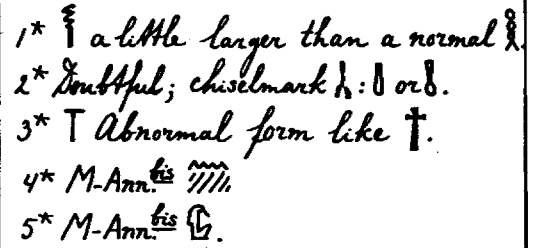 1* 𓎛 a little larger than a normal 𓎛.
2* Doubtful; chiselmark : or .
3* T Abnormal form like †.
4* M-Ann. bis
5* M-Ann. bis .